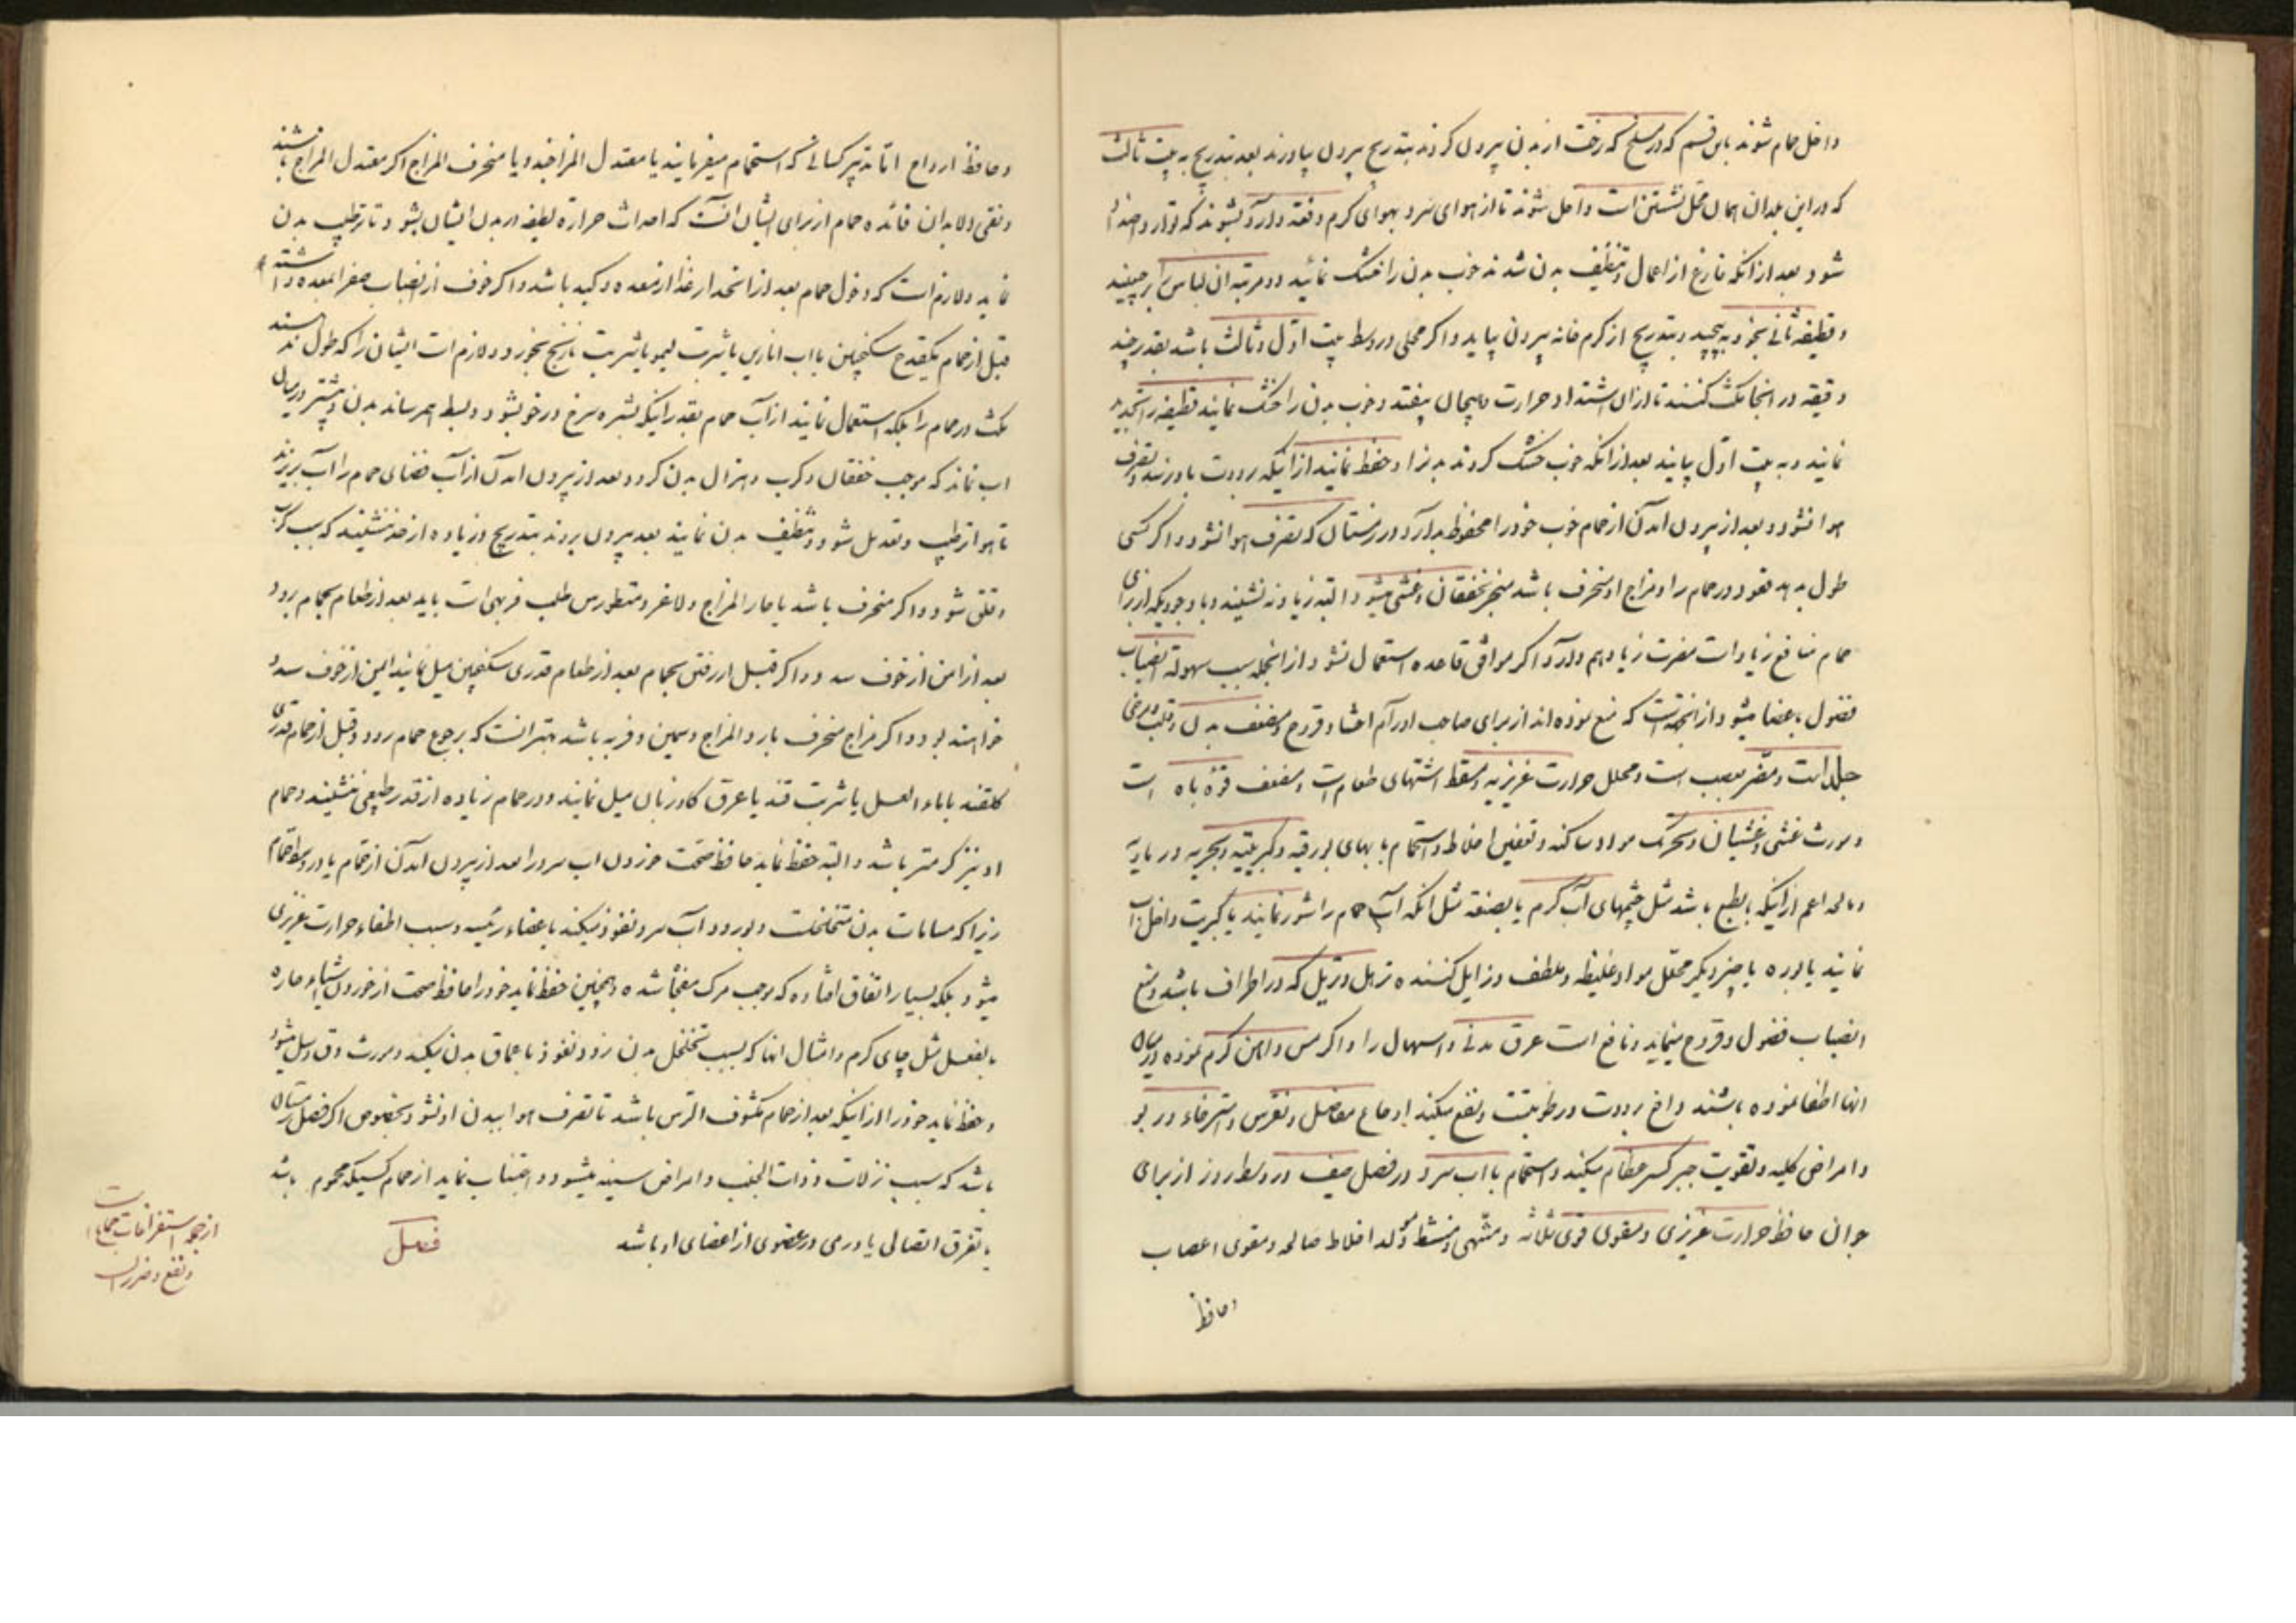 داخل حمام شوند باین قسم که در مسلخ که رخت از بدن بیرون کردند بتدریج بیرون بیاورند بعد بتدریج به بیت ثالث
که در این بلدان همان محل نشستن است داخل شوند تا از هوای سرد بهوای کرم دفعة وارد نشوند که توارد ضدان
شود بعد از انکه فارغ از اعمال و تنظیف بدن شدند خوب بدن را خشک نمائید و مرتبه ان لباس را برچینید
و قطیفه ثانی بخود به پیچید و بتدریج از کرم خانه بیرون بیاید و اکر محلی در وسط بیت اول و ثالث باشد بقدر چند
دقیقه در انجا مکث کنند تا از ان اشتداد حرارت و هیجان بیفتد و خوب بدن را خشک نمایند قطیفه را تجدید
نمایند و به بیت اول بیایند بعد از انکه خوب خشک کردند بدنرا و حفظ نمایند از اینکه برودت باو رسد و تصرف
هوا نشود و بعد از بیرون امدن از حمام خوب خود را محفوظ بدارد در زمستان که تصرف هوا نشود و اکر کسی
طول بدهد قعود در حمام را و مزاج او منحرف باشد منجر بخفقان و غشی میشود البته زیاد نه نشیند و با وجودیکه از برای
حمام منافع زیاد است مضرت زیاد هم دارد اکر موافق قاعده استعمال نشود از انجمله سبب سهولة انصباب
فضول باعضا میشود از انجهت است که منع نموده اند از برای صاحب اورام احشا و قروح و مضعف بدن و قلب و مرخی
جلد است و مضر بعصب است و محلل حرارت غریزیه و مسقط اشتهای طعام است و مضعف قوه باه است
و مورث غشی و غشیان و محرک مواد ساکنه و تعفین اخلاط و استحمام بابهای بورقیه و کبریتیه و بحریه و رمادیه
و مالحه اعم از اینکه بالطبع باشد مثل چشمهای آب کرم یا بصنعة مثل انکه آب حمام را شور نمایند یا کبریت داخل آب
نمایند یا بوره یا چیز دیکر محلل مواد غلیظه و ملطف و زایل کننده ترهل و تربل که در اطراف باشد و منع
انصباب فضول و قروح مینماید و نافع است عرق مدنی و اسهال را و اکر مس و آهن کرم نموده در میان
انها اطفا نموده باشند دافع برودت و رطوبتست و نفع میکند اوجاع مفاصل و نقرس و استرخاء و ربو
و امراض کلیه و تقویت جبر کسر عظام میکند و استحمام با اب سرد در فصل صیف در وسط روز از برای
جوان حافظ حرارت غریزی و مقوی قوی ثلاثه و مشهی و منشط و مولد اخلاط صالحه و مقوی اعصاب
و حافظ
و حافظ ارواح اما تدبیر کسانی که استحمام میفرمایند یا معتدل المزاجند و یا منحرف المزاج اکر معتدل المزاج باشند
و نقی الابدان فائده حمام از برای ایشان انست که احداث حرارة لطیفه در بدن ایشان بشود تا ترطیب بدن
نماید و لازم است که دخول حمام بعد از انحدار غذا از معده و کبد باشد و اکر خوف از انصباب صفرا بمعده داشته
قبل از حمام یکقدح سکنجبین با اب انارین یا شربت لیمو یا شربت نارنج بخورد و لازم است ایشان را که طول ندهند
مکث در حمام را بلکه استعمال نمایند از آب حمام بقدر اینکه بشره سرخ و رخو بشود و بسط بهم رساند بدن و بیشتر در میان
اب نماند که موجب خفقان و کرب و هزال بدن کردد و بعد از بیرون امدن از آب فضای حمام را آب بریزند
تا هوا ترطیب و تعدیل شود و تنظیف بدن نمایند بعد بیرون بروند بتدریج و زیاده از حد ننشینند که سبب کرب
و قلق شود و اکر منحرف باشد یا حار المزاج و لاغر و منظورش طلب فربهی است باید بعد از طعام بحمام برود
بعد از امن از خوف سدد و اکر قبل از رفتن بحمام بعد از طعام قدری سکنجبین میل نمایند ایمن از خوف سدد
خواهند بود و اکر مزاج منحرف بارد المزاج و سمین و فربه باشد بهتر انست که برجوع حمام رود و قبل از حمام قدری
کلقند با ماء العسل یا شربت قند یا عرق کاوزبان میل نمایند و در حمام زیاده از قدر طبیعی ننشینند و حمام
او نیز کرمتر باشد و البته حفظ نماید حافظ صحت خوردن اب سرد را بعد از بیرون آمدن از حمام یا در وسط حمام
زیرا که مسامات بدن متخلخلست و بورود آب سرد نفوذ میکند باعضاء رئیسه و سبب اطفاء حرارت غریزی
میشود بلکه بسیار اتفاق افتاده که موجب مرک مفجأ شده و همچنین حفظ نماید خود را حافظ صحت از خوردن اشیاء حاره
بالفعل مثل چای کرم و امثال انها که بسبب تخلخل بدن زود نفوذ باعماق بدن میکند و مورث دق و سل میشود
و حفظ نماید خود را از اینکه بعد از حمام مکشوف الراس باشد تا تصرف هوا ببدن او نشود بخصوص اکر فصل زمستان
باشد که سبب نزلات و ذات الجنب و امراض سینه میشود و اجتناب نماید از حمام کسیکه محموم باشد
یا تفرق اتصالی یا ورمی در عضوی از اعضای او باشد فصل
از جمله استفراغات جماع است
و نفع و ضرر ان